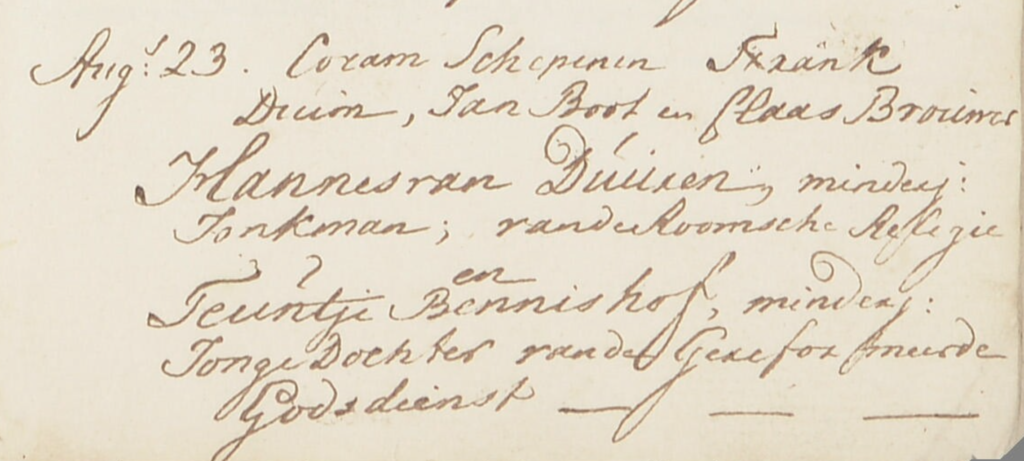 Augt: 23. Coram Schepenen Frank
Duim, Jan Boot en Claas Brouwer
Hannes van Duuren, minderj:
Jonkman; van de Roomsche Relegie
en
Teuntje Bennishof, minderj:
Jonge Dochter van de Gereformeerde
Godsdienst — — —